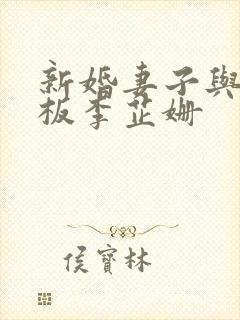 新婚妻子與
板李芷姍
侯寶林